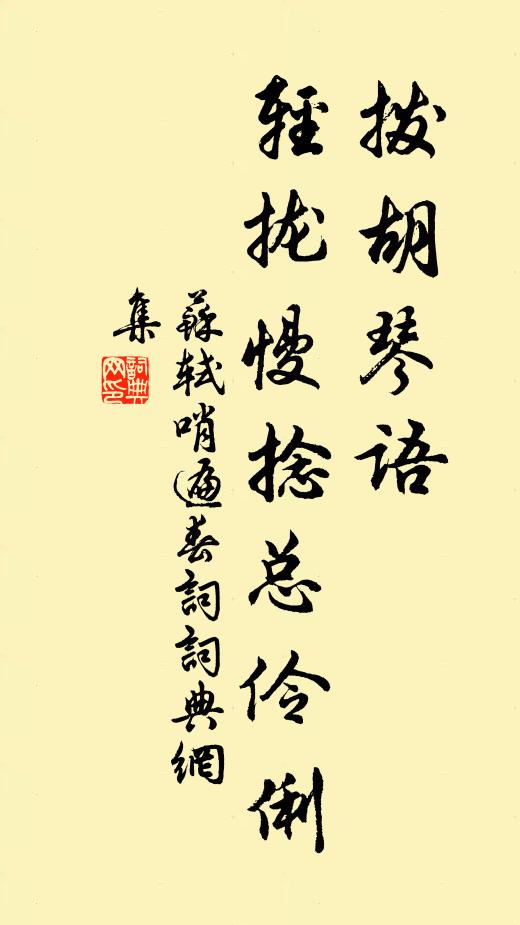 拨胡琴语
轻拢慢捻总伶俐
蘇軾哨遍春詞詞典網
集
詞典
网印